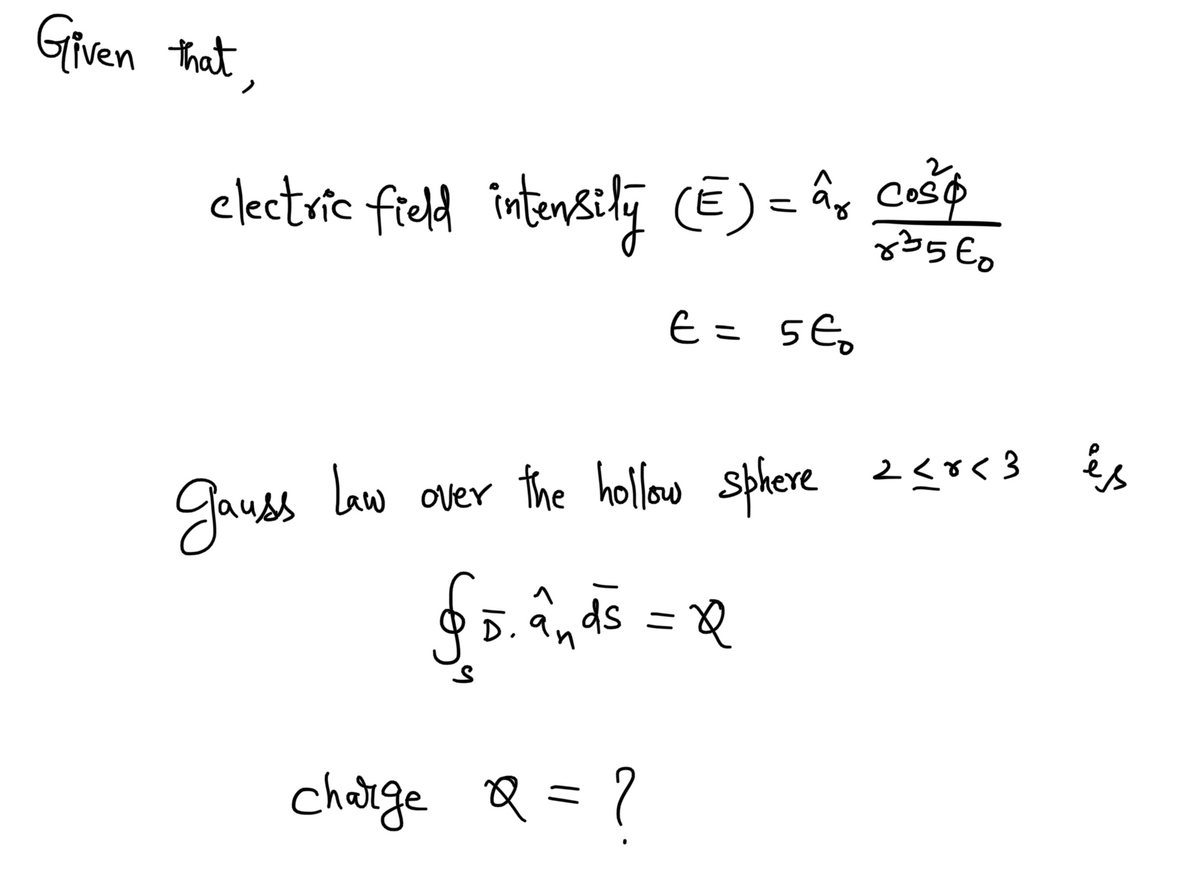 Given that,
electric field intensity (Ē) = âᵣ cos²φ / r³5ϵ₀
ϵ = 5ϵ₀
Gauss law over the hollow sphere 2 ≤ r < 3 is
∮ₛ D̄. âₙ d̄s̄ = Q
charge Q = ?